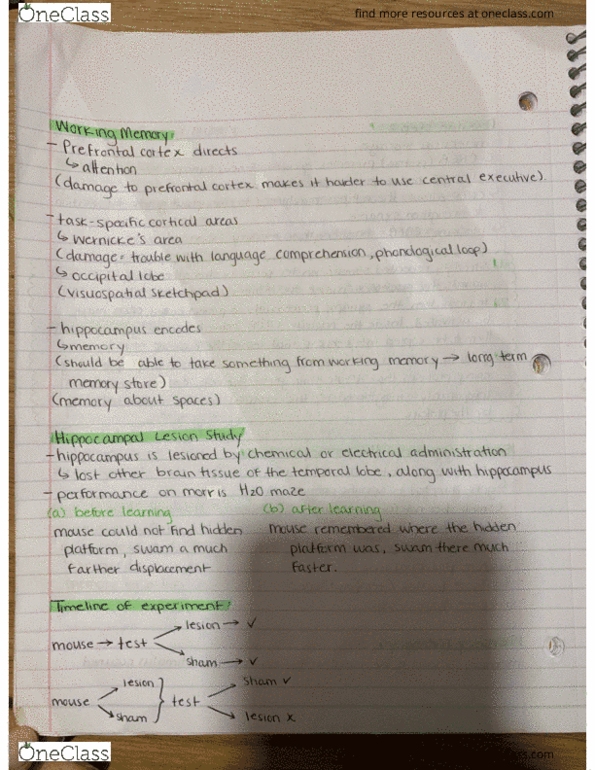 OneClass
find more resources at oneclass.com
Working Memory:
- Prefrontal cortex directs
↳ attention
(damage to prefrontal cortex makes it harder to use central executive)
- task-specific cortical areas
↳ Wernicke's area
(damage = trouble with language comprehension, phonological loop)
↳ occipital lobe
(visuospatial sketchpad)
- hippocampus encodes
↳ memory
(should be able to take something from working memory → long term
memory store)
(memory about spaces)
Hippocampal Lesion Study
- hippocampus is lesioned by chemical or electrical administration
↳ lost other brain tissue of the temporal lobe, along with hippocampus
- performance on morris H20 maze
(a) before learning (b) after learning
mouse could not find hidden mouse remembered where the hidden
platform, swam a much platform was, swam there much
farther displacement faster.
Timeline of experiment:
lesion → ✓
mouse → test
sham → ✓
lesion } sham ✓
mouse test
sham lesion x
OneClass